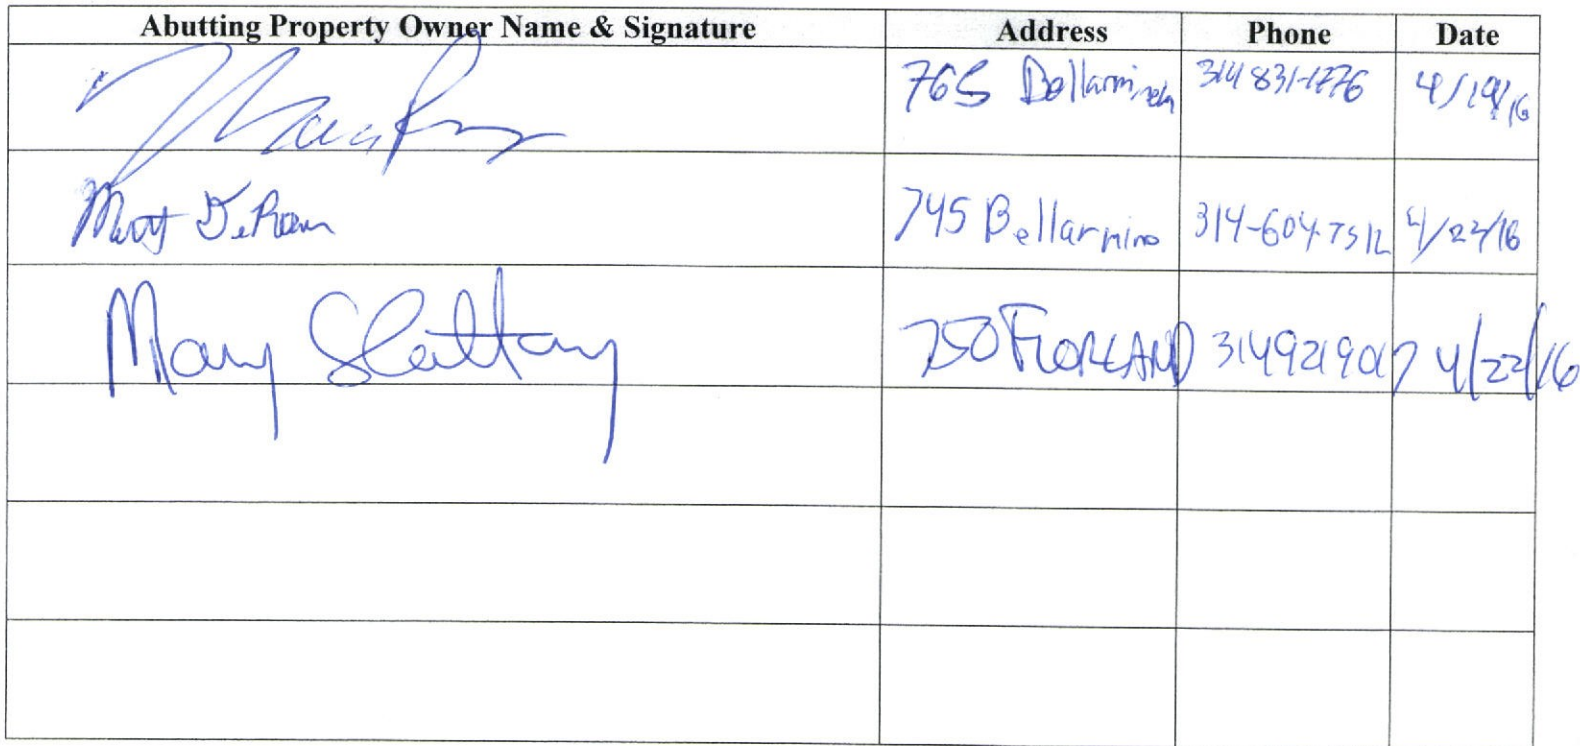 Abutting Property Owner Name & Signature Address Phone Date
765 314 831-1776 4/19/16
Matt 745 Bellarmine 314-604-7512 4/22/16
Mary Slattery 750 FLORLAND 3149219017 4/22/16